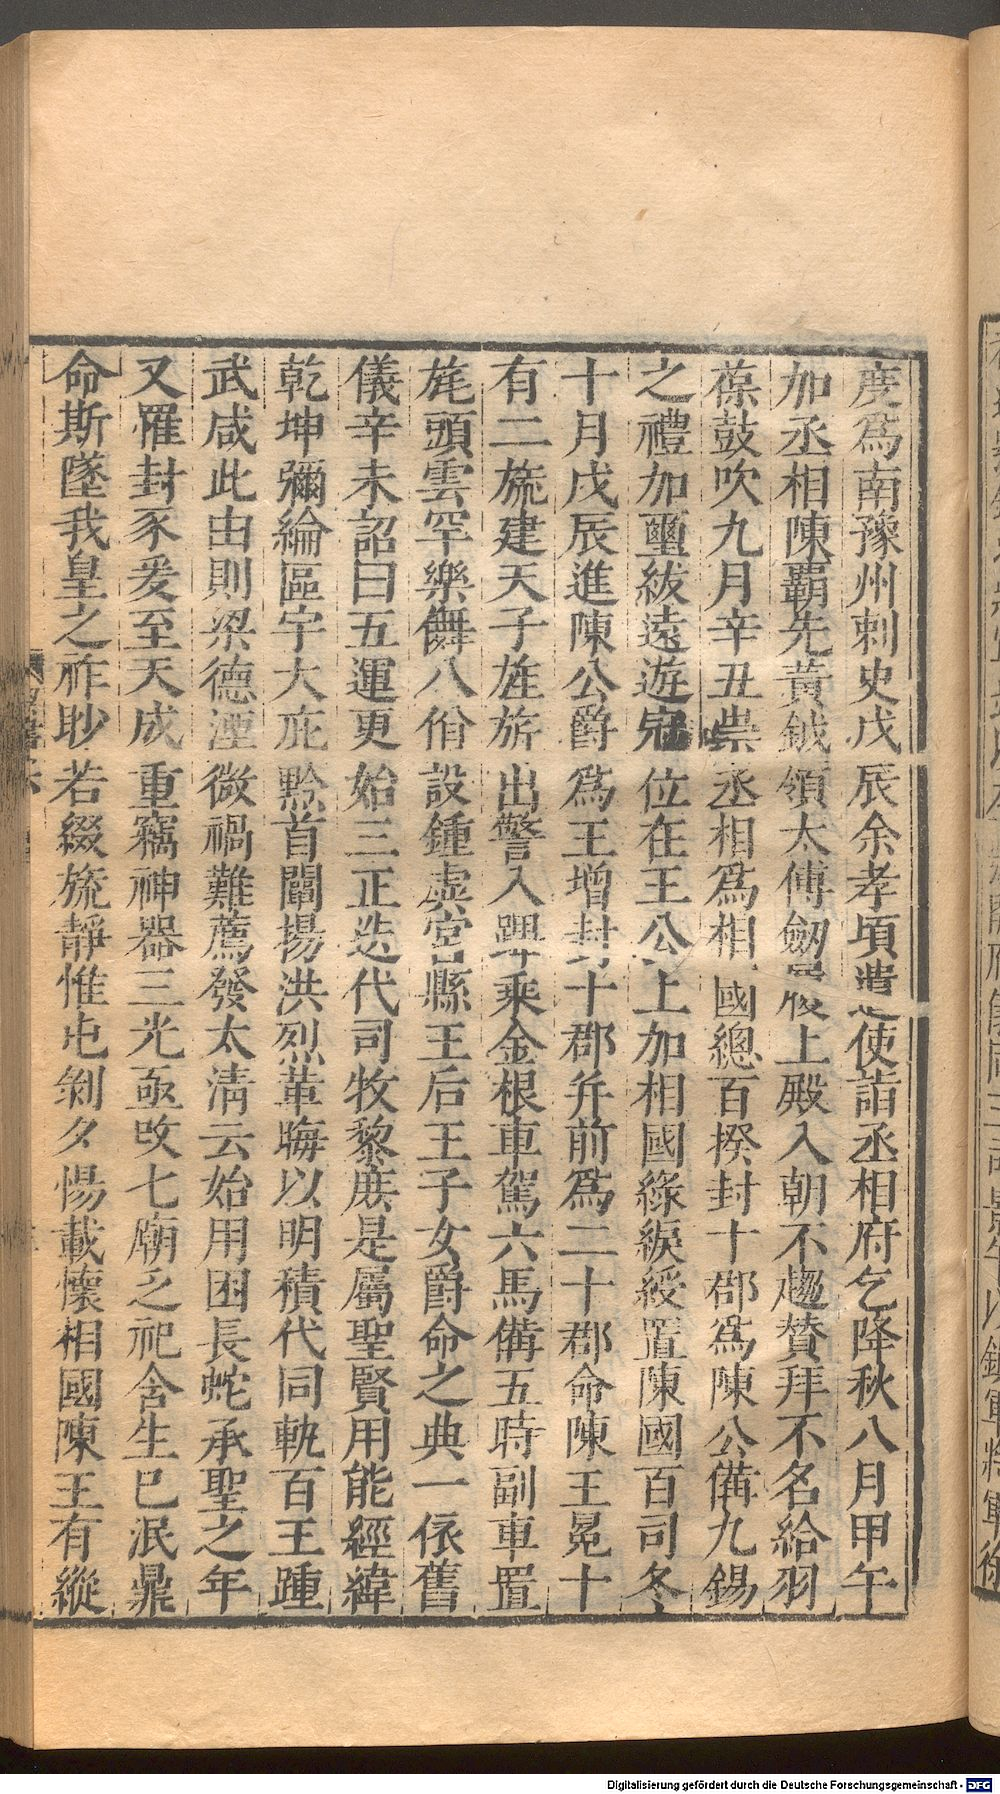 度爲南豫州刺史戊辰余孝頃遣使詣丞相府乞降秋八月甲午
加丞相陳霸先黃鉞領太傅劔履上殿入朝不趨贊拜不名給羽
葆鼓吹九月辛丑崇丞相爲相國總百揆封十郡爲陳公備九錫
之禮加璽紱遠遊冠位在王公上加相國綠綟綬置陳國百司冬
十月戊辰進陳公爵爲王增封十郡并前爲二十郡命陳王冕十
有二旒建天子旌旂出警入蹕乘金根車駕六馬備五時副車置
旄頭雲罕樂儛八佾設鍾虡宮縣王后王子女爵命之典一依舊
儀辛未詔曰五運更始三正迭代司牧黎庶是屬聖賢用能經緯
乾坤彌綸區宇大庇黔首闡揚洪烈革晦以明積代同軌百王踵
武咸此由則梁德湮微禍難薦發太清云始用困長蛇承聖之年
又罹封豕爰至天成重竊神器三光亟改七廟乏祀含生已泯鼎
命斯墜我皇之祚眇若綴旒靜惟屯剝夕惕載懷相國陳王有縱
Digitalisierung gefördert durch die Deutsche Forschungsgemeinschaft - DFG